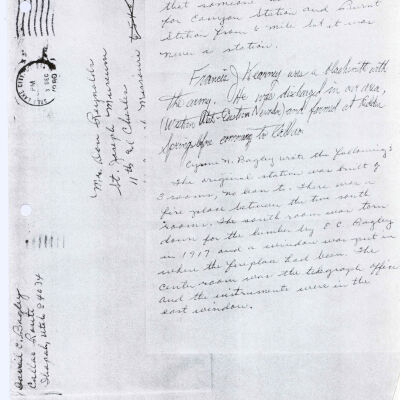 that someone
for Canyon Station and Burnt
Station from 6 mile but it was
never a station.
Francis J Kearney was a blacksmith with
the army. He was discharged in our area,
(Western Utah-Eastern Nevada) and farmed at
Springs before comming to Callao.
Cyrene N. Bagley wrote the following:
The original station was built of
3 rooms, no barn to. There was a
fire place between the two south
rooms. The south room was torn
down for the lumber by E C. Bagley
in 1917 and a window was put in
where the fireplace had been. The
center room was the telegraph office
and the instruments were in the
east window.
Mrs. Don Reynolds
St. Joseph Museum
11th & Charles
St. Joseph Missouri
PM
DEC
1980
David E. Bagley
Callao Route
Ibapah, Utah 84034